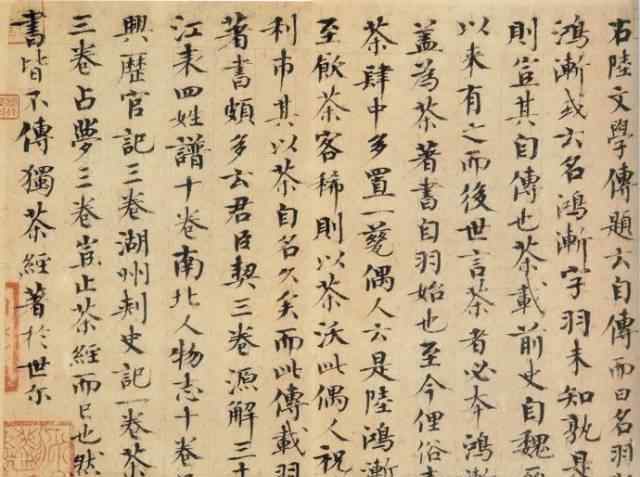 右陸文學傳題云自傳而曰名羽
鴻漸或云名鴻漸字羽未知孰是
則豈其自傳也茶載前史自魏
以来有之而後世言茶者必本鴻漸
盖為茶著書自羽始也至今俚俗
茶肆中多置一甆偶人云是陸鴻漸
至飲茶客稀則以茶沃此偶人祝
利市其以茶自名久矣而此傳載羽
著書頗多云君臣契三卷源解三十
江表四姓譜十卷南北人物志十卷
興歷官記三卷湖州刺史記一卷茶
三卷占夢三卷豈止茶經而已也然
書皆不傳獨茶經著於世尔